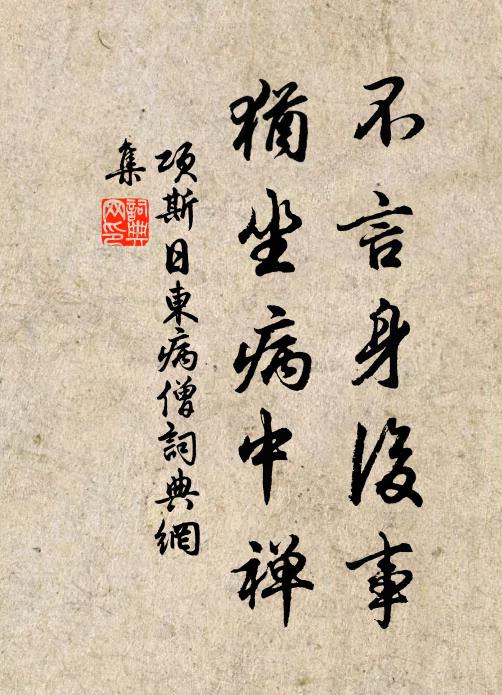 不言身後事
猶坐病中禅
項斯日東病僧詞典網
集
詞典網印